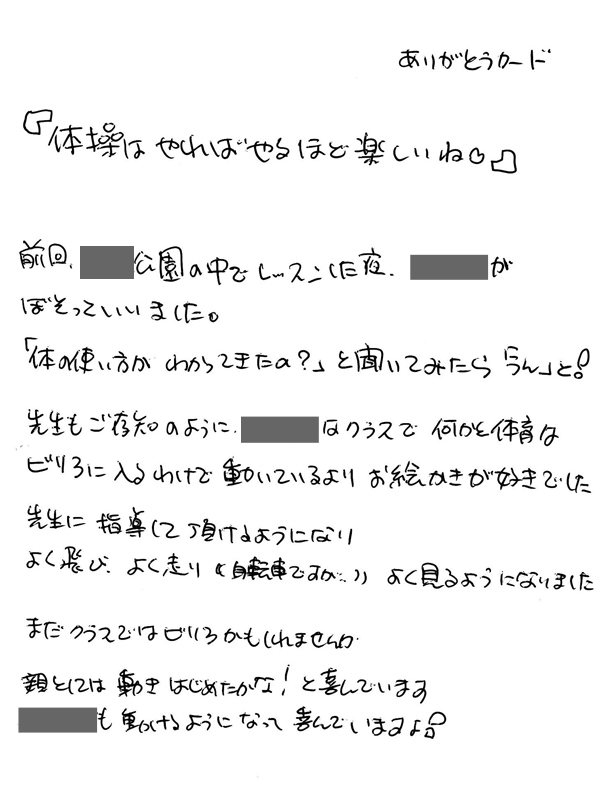 ありがとうカード
『体操は やればやるほど楽しいね。』
前回、公園の中でレッスンした夜、が
ぼそっていいました。
「体の使い方が わかってきたの?」と聞いてみたら「うん」と!
先生もご存知のように、はクラスで 何かと体育は
ビリろに入るわけで 動いているより お絵かきが好きでした
先生に 指導して頂けるようになり
よく飛び、よく走り(自転車ですが…)よく見るようになりました
まだクラスではビリろかもしれませんが
親としては 動きはじめたかな!と喜んでいます
も 動けるようになって 喜んでいますよ!